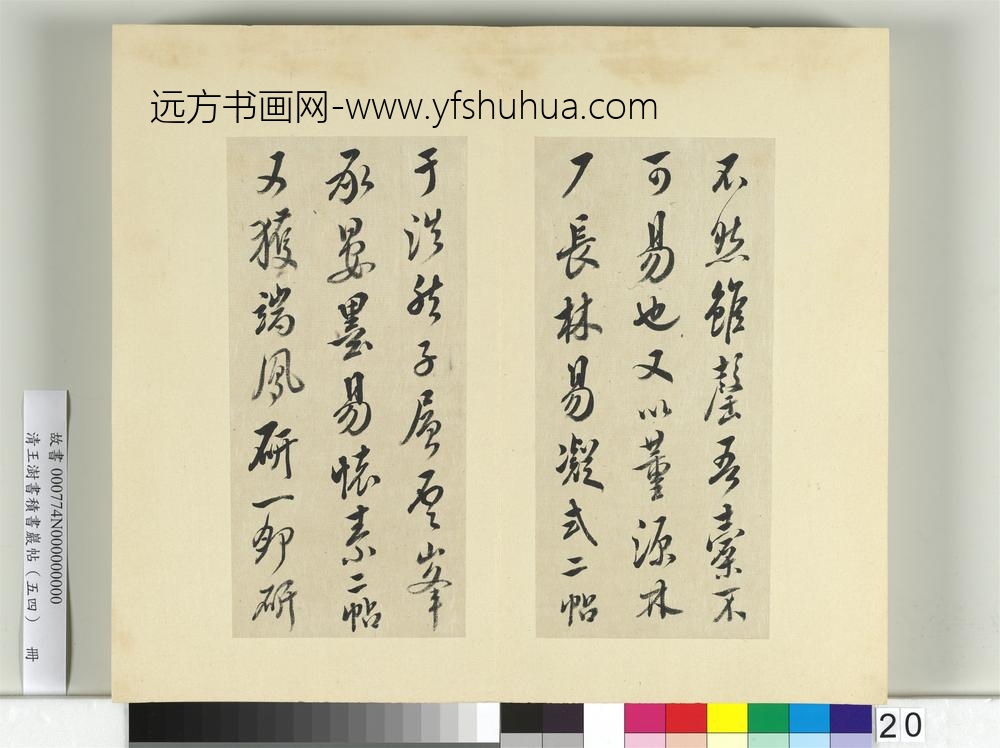 远方书画网-www.yfshuhua.com
不然雖罄吾橐不
可易也又以董源林
長林易凝式二帖
于洪然子層雲峯
承晏墨易懷素二帖
又獲端鳳研一即研
故書 000774N000000000
清王澍書積書巖帖(五四) 冊
20